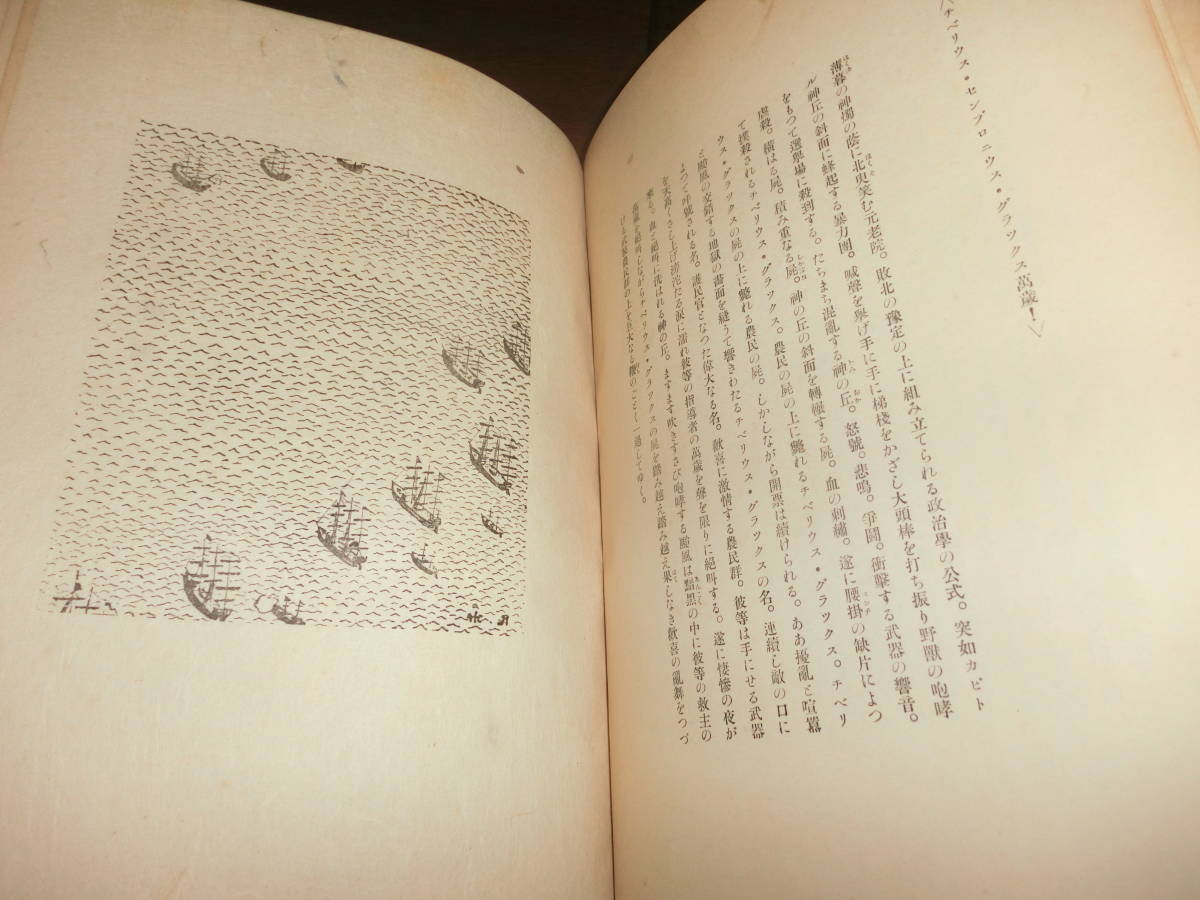 〈チベリウス・センプロニウス・グラックス萬歳！〉
薄暮の神燭の蔭に北叟笑む元老院。敗北の豫定の上に組み立てられる政治學の公式。突如カピト
ル神丘の斜面に蜂起する暴力團。喊聲を擧げ手に手に梯棧をかざし大頭棒を打ち振り野獸の咆哮
をもつて選擧場に殺到する。たちまち混亂する神の丘。怒號。悲鳴。爭鬪。衝擊する武器の響音。
虐殺。橫はる屍。積み重なる屍。神の丘の斜面を轉輾する屍。血の刺繡。遂に腰掛の缺片によつ
て撲殺されるチベリウス・グラックス。農民の屍の上に斃れるチベリウス・グラックス。チベリ
ウス・グラックスの屍の上に斃れる農民の屍。しかしながら開票は續けられる。ああ擾亂と喧囂
と颱風の交錯する地獄の畫面を縫うて響きわたるチベリウス・グラックスの名。連續し敵の口に
よつて呼號される名。護民官となつた偉大なる名。歡喜に激情する農民群。彼等は手にせる武器
を天高くさし上げ滂沱たる淚に濡れ彼等の指導者の萬歳を聲を限りに絕叫する。遂に悽慘の夜が
來る。血と絕叫に洗はれる神の丘。ますます吹きすさび咆哮する颱風は黯黑の中に彼等の救主の
萬歳を絕叫しながらチベリウス・グラックスの屍を踏み越え踏み越え果しなき歡喜の亂舞をつづ
ける武裝農民群の上を巨大なのごとく一過してゆく。